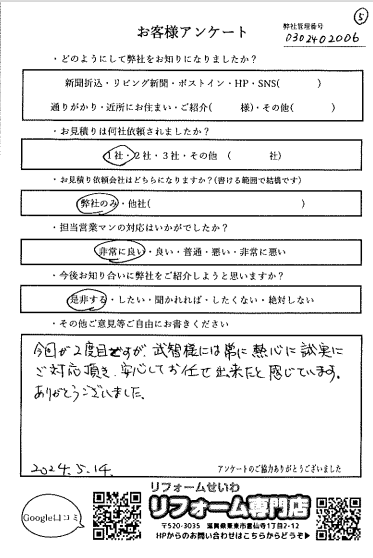 ⑤
お客様アンケート
弊社管理番号
0302402006
・どのようにして弊社をお知りになりましたか？
新聞折込・リビング新聞・ポストイン・HP・SNS(　　　)
通りがかり・近所にお住まい・ご紹介(　　　様)・その他(　　　)
・お見積りは何社依頼されましたか？
1社・2社・3社・その他　(　　　社)
・お見積り依頼会社はどちらになりますか？(書ける範囲で結構です)
弊社のみ・他社(　　　)
・担当営業マンの対応はいかがでしたか？
非常に良い・良い・普通・悪い・非常に悪い
・今後お知り合いに弊社をご紹介しようと思いますか？
是非する・したい・聞かれれば・したくない・絶対しない
・その他ご意見等ご自由にお書きください
今回が2度目ですが、武智様には常に熱心に誠実に
ご対応頂き、安心してお任せ出来たと感じています。
ありがとうございました。
2024.5.14.
アンケートのご協力ありがとうございました
Google口コミ
リフォームせいわ
リフォーム専門店
〒520-3035 滋賀県栗東市霊仙寺1丁目2-12
HPからのお問い合わせはこちらからどうぞ▶